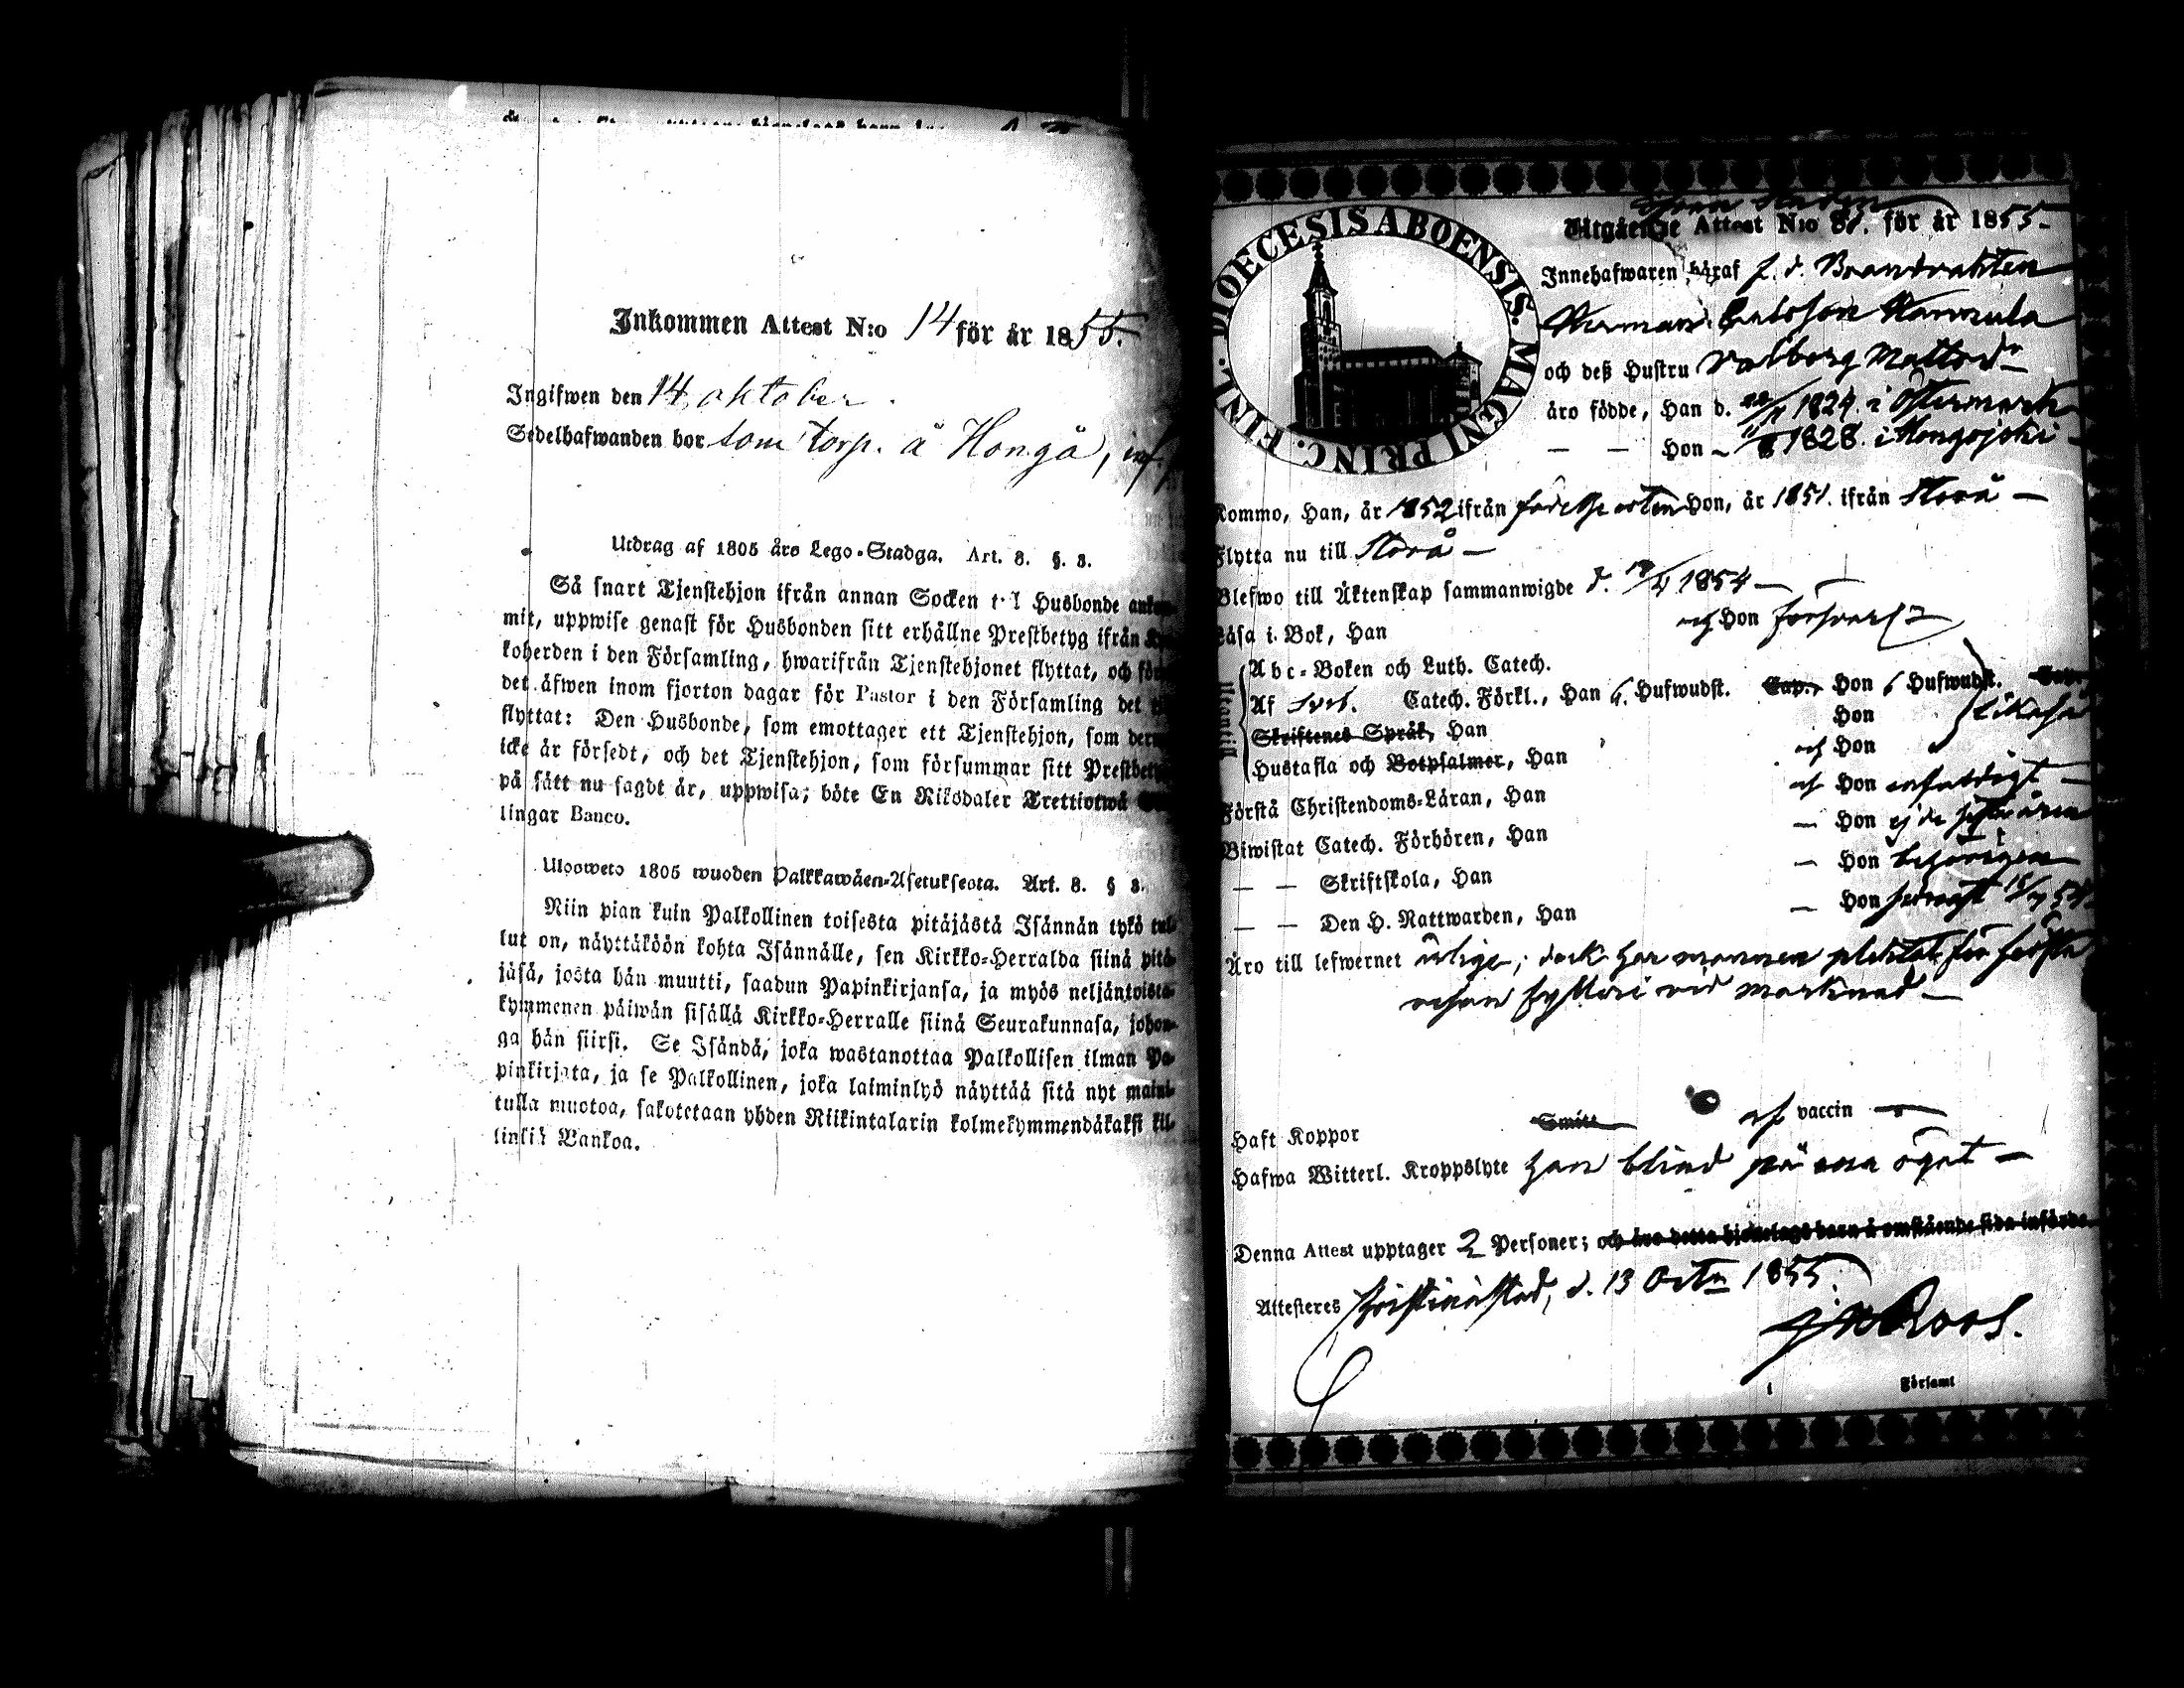 Inkommen Attest N:o 14 för år 1855.
Ingifwen den 14 oktober.
Sedelhafwanden bor som torp. å Hongå,
Utdrag af 1805 års Lego-Stadga. Art. 8. §. 8.
Så snart Tjenstehjon ifrån annan Socken till Husbonde ankom-
mit, uppwise genast för Husbonden sitt erhållne Prestbetyg ifrån
koherden i den Församling, hwarifrån Tjenstehjonet flyttat, och
det äfwen inom fjorton dagar för Pastor i den Församling det
flyttat: Den Husbonde, som emottager ett Tjenstehjon, som
icke är försedt, och det Tjenstehjon, som försummar sitt Prestbetyg
på sätt nu sagdt är, uppwisa; böte En Riksdaler Trettiotwå
lingar Banco.
Ulosweto 1805 wuoden Palkkawäen-Asetuksesta. Art. 8. § 8.
Niin pian kuin Palkollinen toisesta pitäjästä Isännän tykö tul-
lut on, näyttäköön kohta Isännälle, sen Kirkko-Herralda siinä pitä-
jäsä, josta hän muutti, saadun Papinkirjansa, ja myös neljäntoista-
kymmenen päiwän sisällä Kirkko-Herralle siinä Seurakunnasa, johon-
ga hän siirsi. Se Isändä, joka wastanottaa Palkollisen ilman Pa-
pinkirjata, ja se Palkollinen, joka laiminlyö näyttää sitä nyt maini-
tulla muotoa, sakotetaan yhden Riikintalarin kolmekymmendäkaksi kil-
linkiä Bankoa.
DIOECESIS ABOENSIS. MAGNI PRINC. FINL.
Utgående Attest N:o 81. för år 1855.
Innehafwaren häraf f. d. Brandvakten
Herman Hannula
och deß Hustru Valborg Mattsdr
äro födde, Han d. 1824 i Östermark
— — Hon 1828. i
Kommo, Han, år 1852 ifrån födelseorten Hon, år 1851. ifrån Storå —
Flytta nu till Storå —
Blefwo till Äktenskap sammanwigde d. 1854 —
Läsa i Bok, Han och Hon försvarl.
Abc-Boken och Luth. Catech.
Af Catech. Förkl., Han 6. Hufwudst. Cap., Hon 6 Hufwudst. Cap.
Skriftenes Språk, Han Hon likaså
Hustafla och Botpsalmer, Han och Hon
Förstå Christendoms-Läran, Han och Hon enfaldigt —
Biwistat Catech. Förhören, Han — Hon ej de sista åren
— — Skriftskola, Han — Hon behörigen
— — Den H. Nattwarden, Han — Hon senast
Äro till lefwernet ärlige; dock har mannen pliktat för första
resan fylleri vid marknad —
Haft Koppor Smitt. och vaccin —
Hafwa Witterl. Kroppslyte Han blind på ena ögat —
Denna Attest upptager 2 Personer; och äro detta hjonelags barn å omstående sida införde.
Attesteres Christinæstad, d. 13 Octr 1855
Roos.
Församl